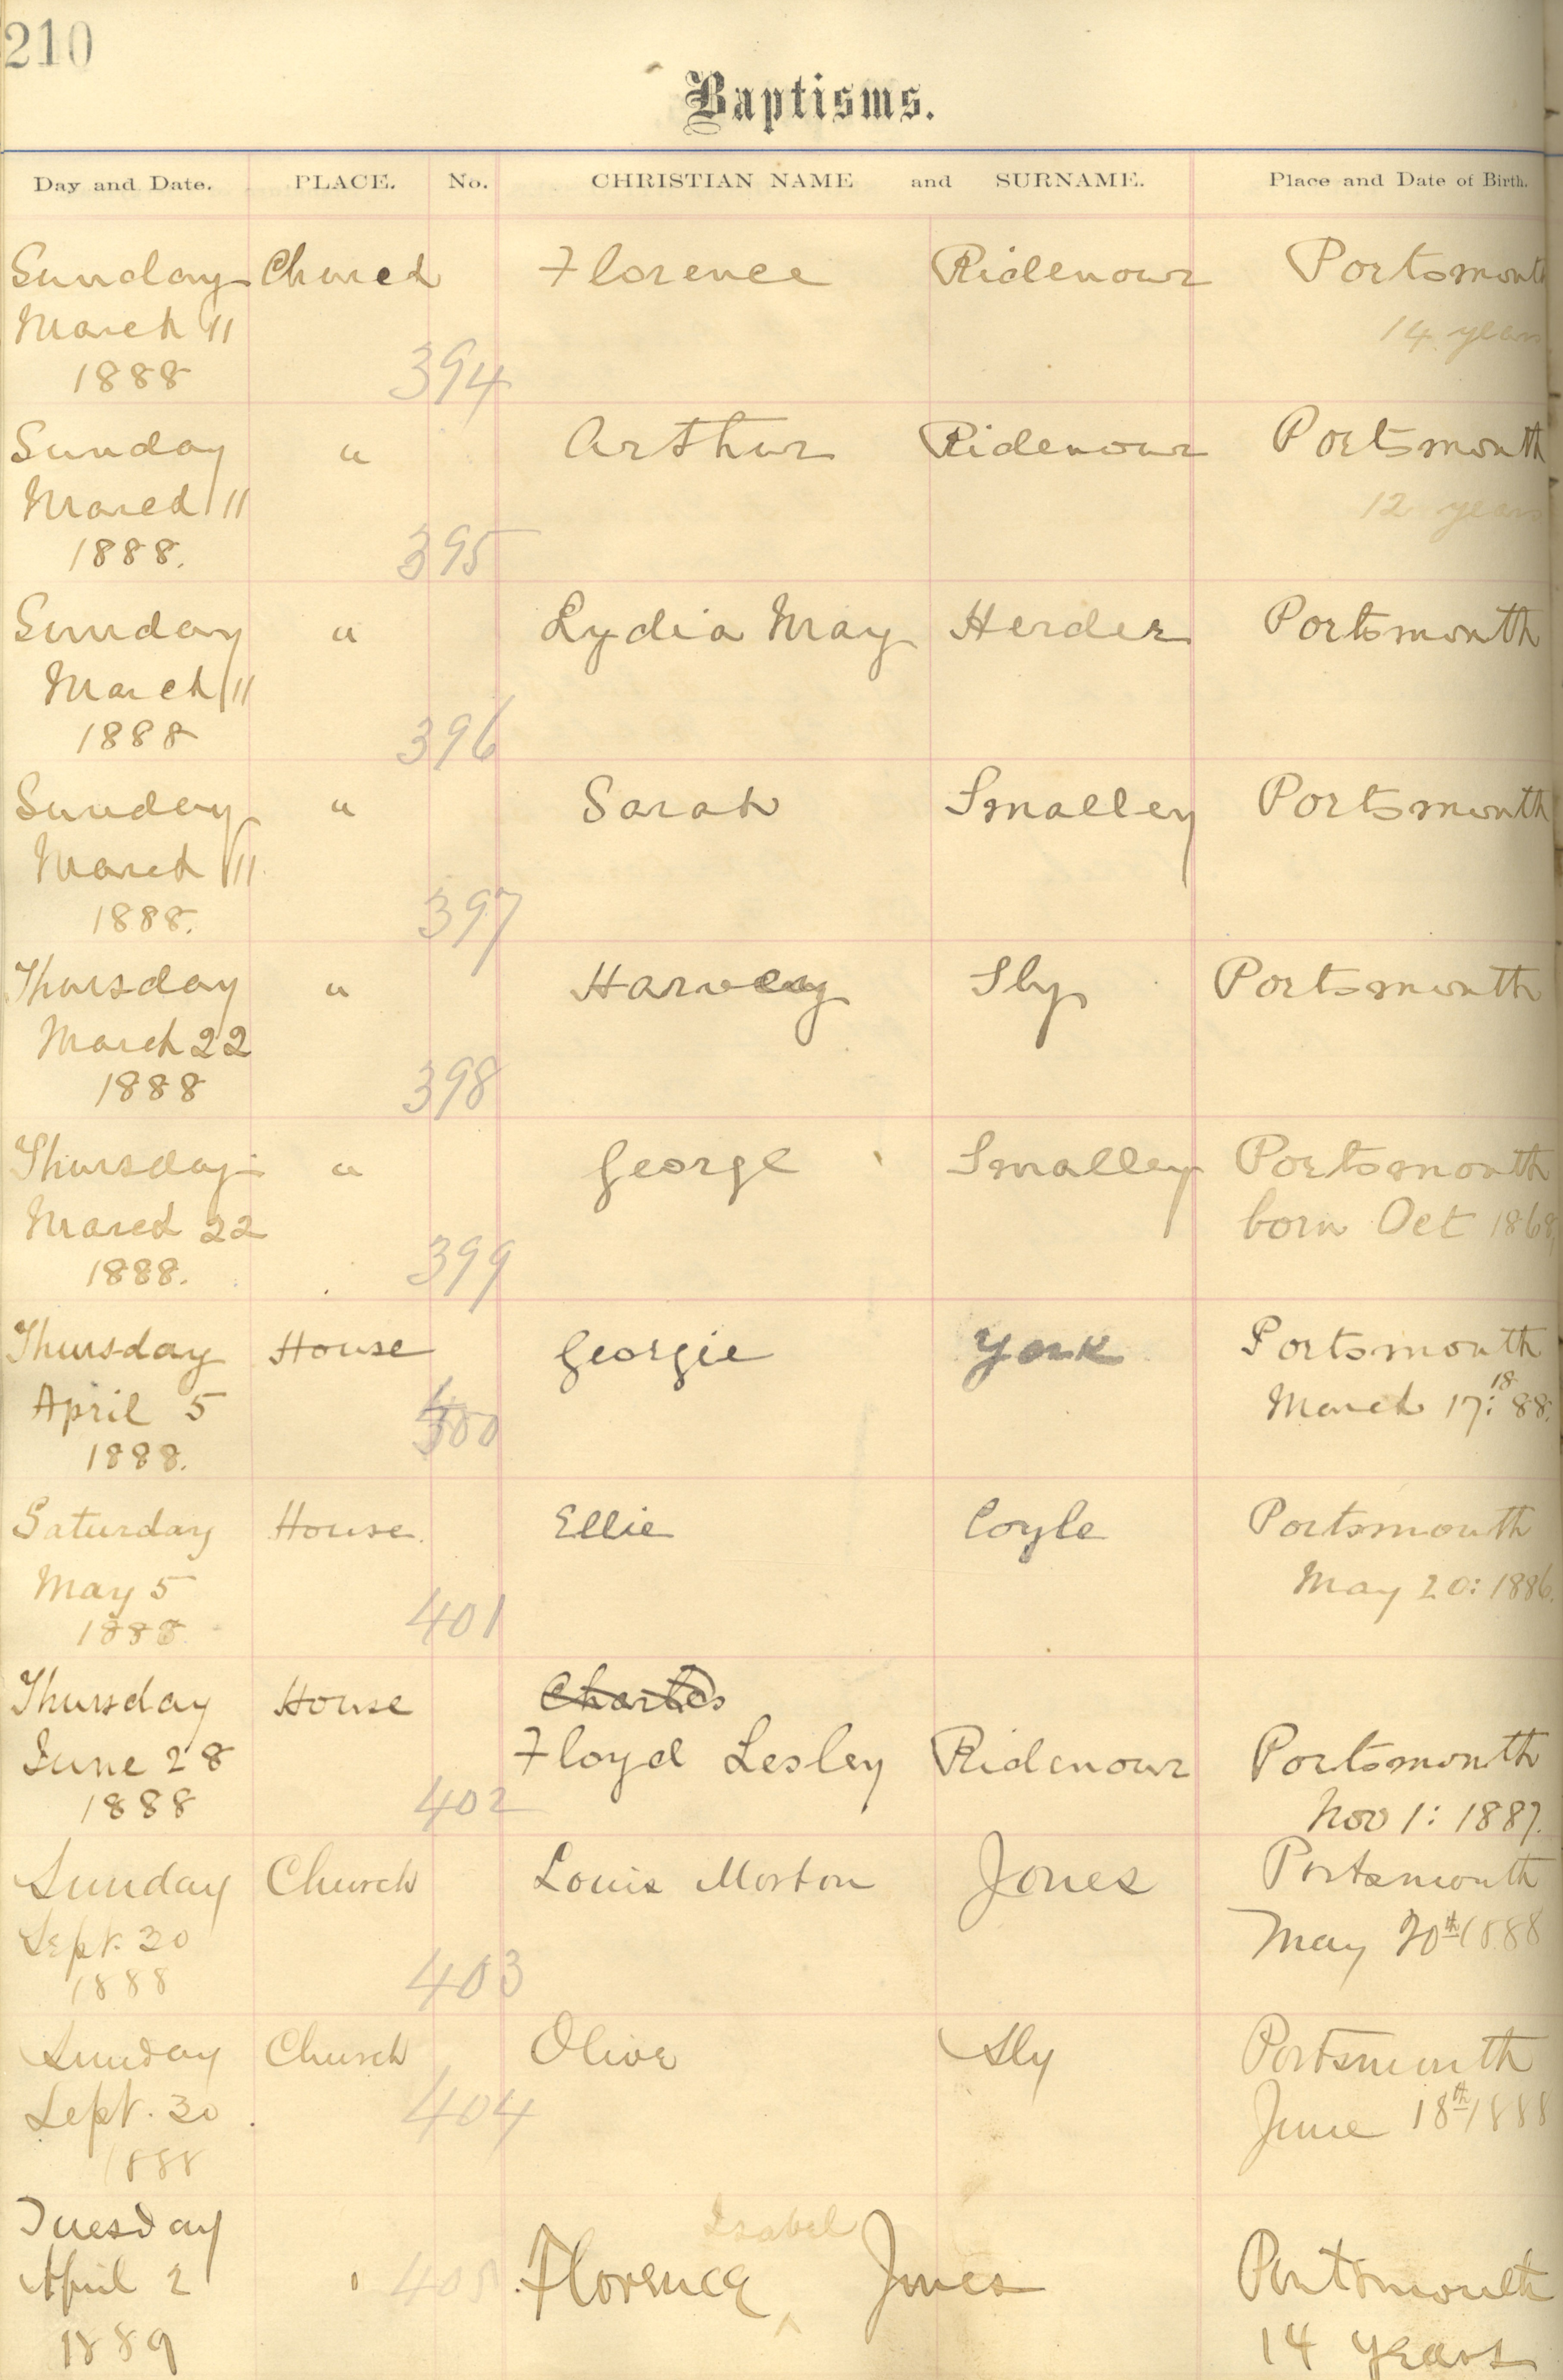 210
Baptisms.
Day and Date. PLACE. No. CHRISTIAN NAME and SURNAME. Place and Date of Birth.
Sunday Church Florence Ridenour Portsmouth
March 11 14 years
1888 394
Sunday " Arthur Ridenour Portsmouth
March 11 12 years
1888. 395
Sunday " Lydia May Herder Portsmouth
March 11
1888 396
Sunday " Sarah Smalley Portsmouth
March 11
1888. 397
Thursday " Harvey Sly Portsmouth
March 22
1888 398
Thursday " George Smalley Portsmouth
March 22 born Oct 1868
1888. 399
Thursday House Georgie York Portsmouth
April 5 400 March 17: 1888.
1888.
Saturday House Ellie Coyle Portsmouth
May 5 May 20: 1886.
1888. 401
Thursday House Charles
June 28 Floyd Lesley Ridenour Portsmouth
1888 402 Nov 1: 1887.
Sunday Church Louis Morton Jones Portsmouth
Sept. 30 May 20th 1888
1888 403
Sunday Church Olive Sly Portsmouth
Sept. 30 404 June 18th 1888
1888
Tuesday Isabel
April 2 405 Florence ^ Jones Portsmouth
1889 14 years